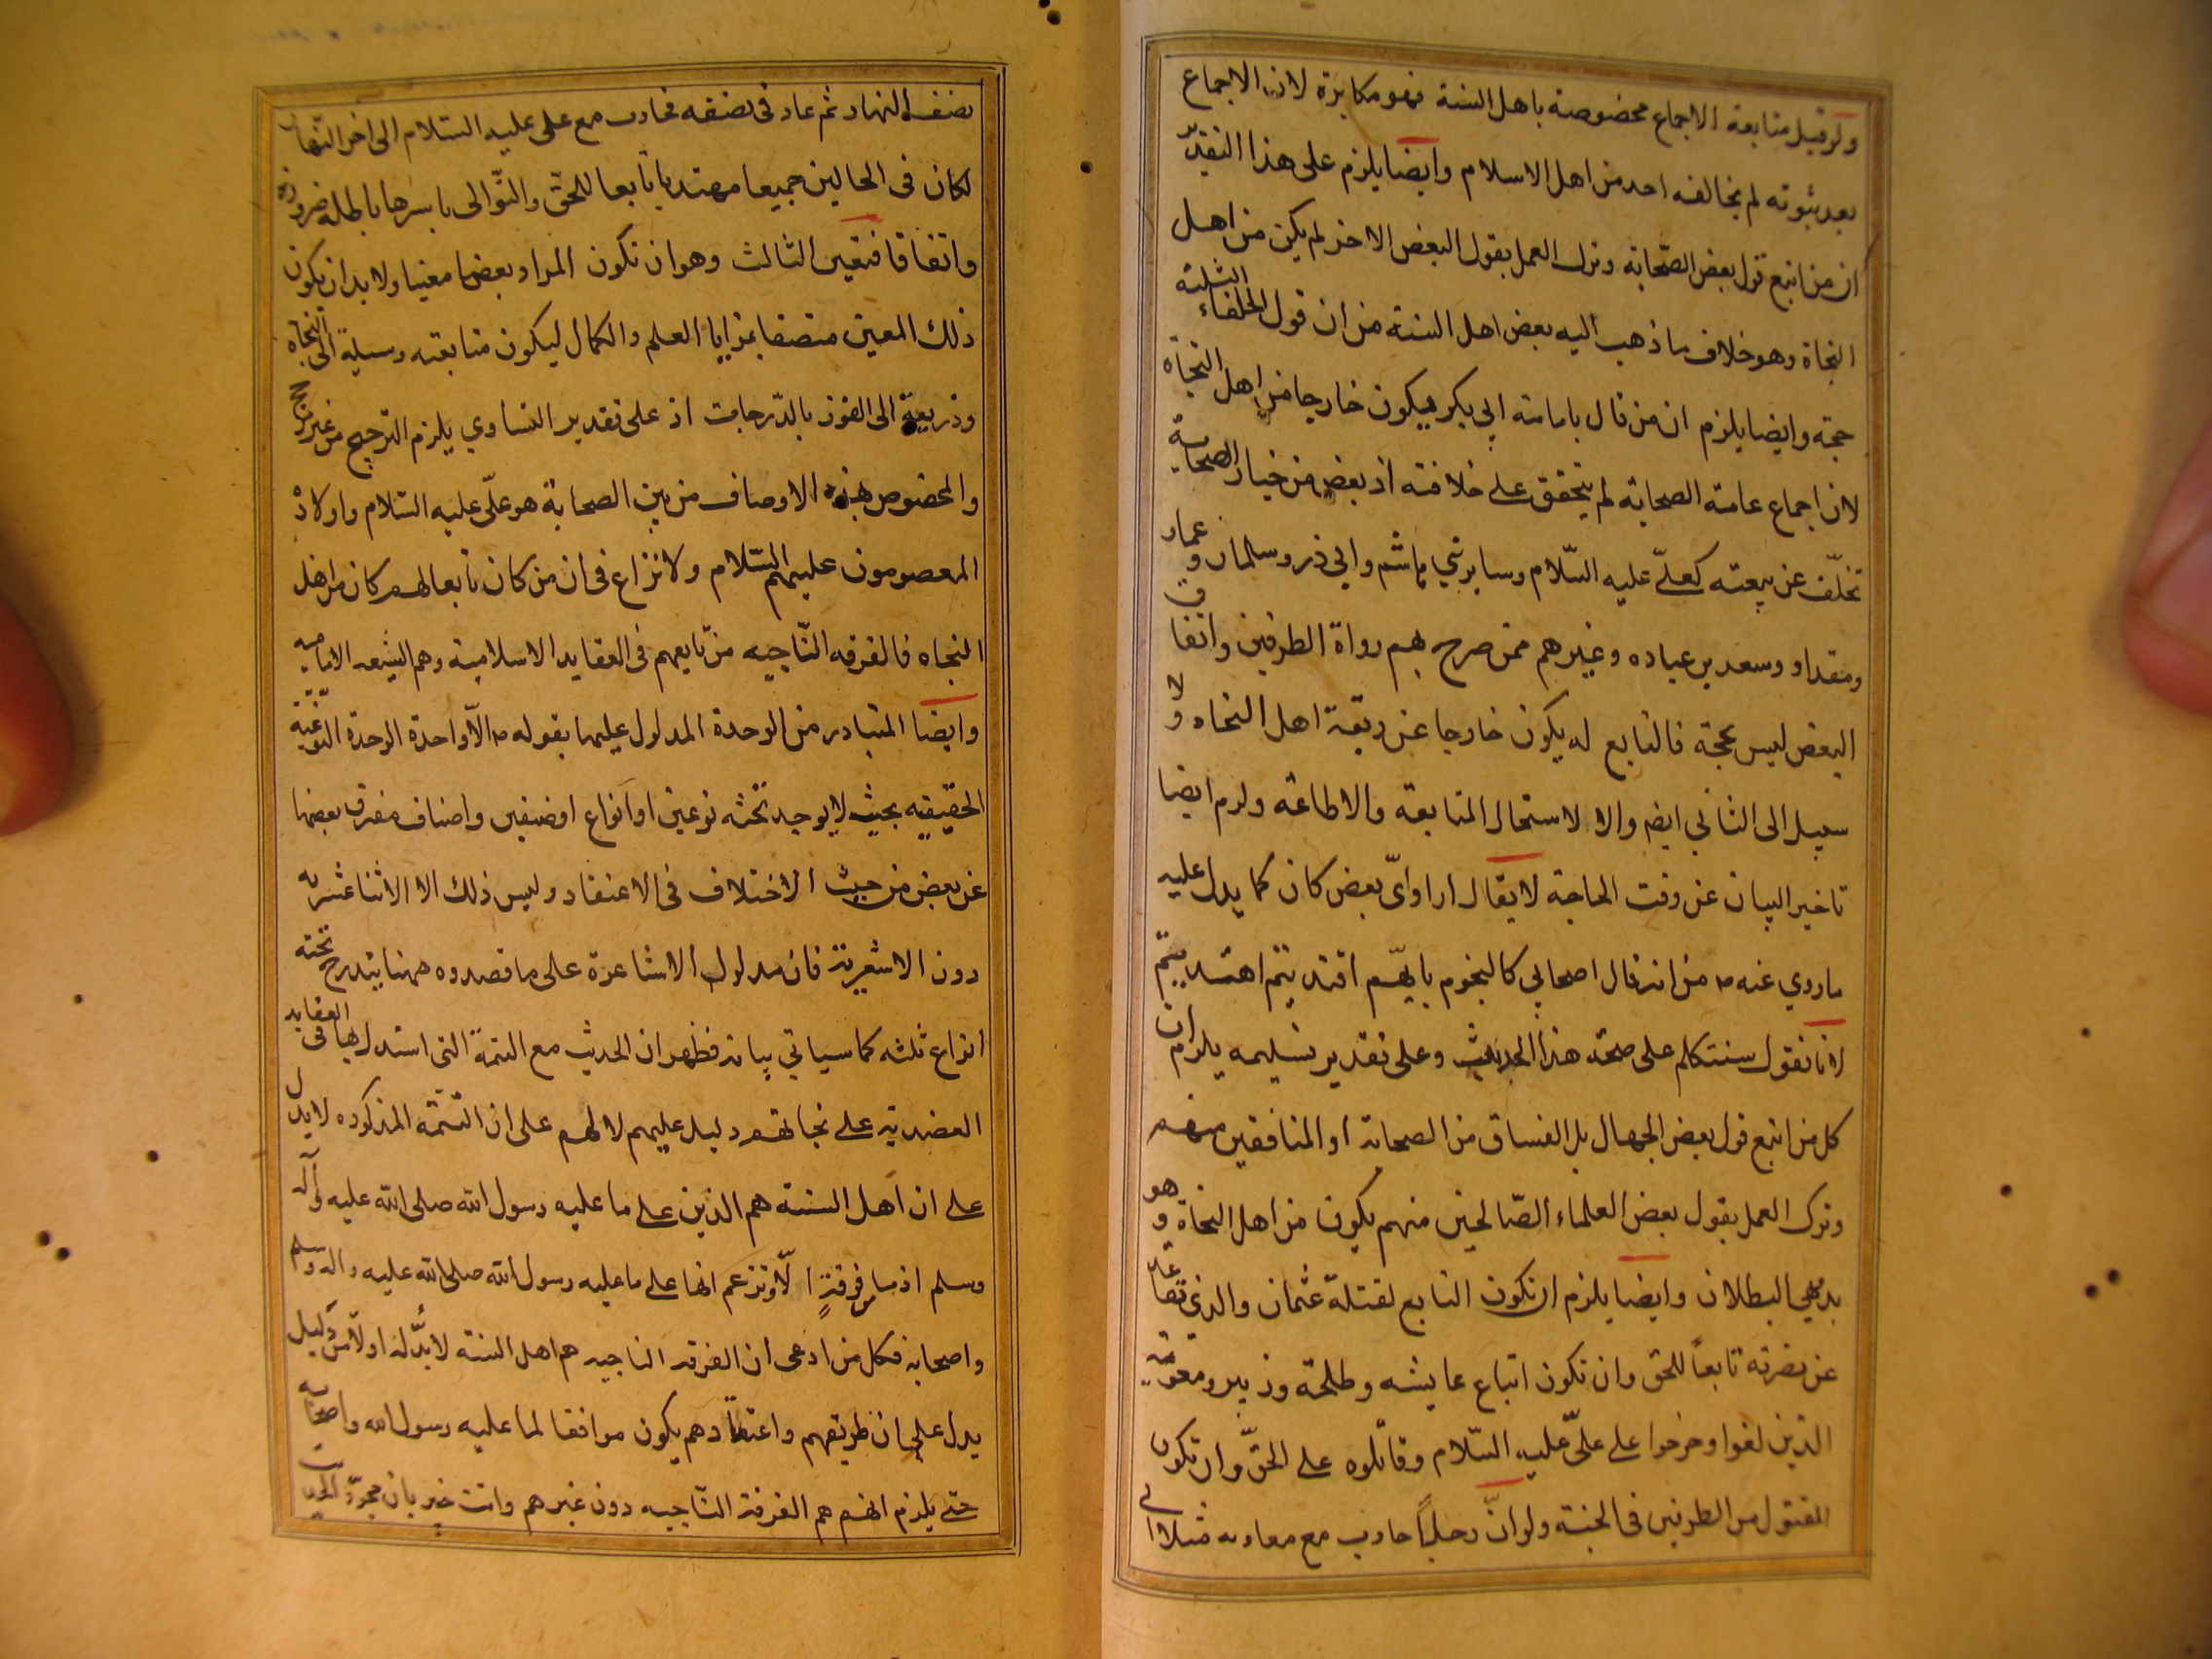 ولو قيل متابعة الاجماع مخصوصة باهل السنة فهو مكابرة لان الاجماع
بعد ثبوته لم يخالفه احد من اهل الاسلام وايضا يلزم على هذا التقدير
ان من اتبع قول بعض الصحابة وترك العمل بقول البعض الاخر لم يكن من اهل
النجاة وهو خلاف ما ذهب اليه بعض اهل السنة من ان قول الخلفاء الثلثة
حجة وايضا يلزم ان من قال بامامة ابي بكر يكون خارجا من اهل النجاة
لان اجماع عامة الصحابة لم يتحقق على خلافته اذ بعض من خيار الصحابة
تخلّف عن بيعته كعليّ عليه السّلام وساير بني هاشم وابي ذر وسلمان وعمار
ومقداد وسعد بن عباده وغيرهم ممن صرح بهم رواة الطرفين واتفاق
البعض ليس بحجة فالتابع له يكون خارجا عن ربقة اهل النجاه ولا
سبيل الى الثاني ايضا والا لاستحال المتابعة والاطاعة ولزم ايضا
تاخير البيان عن وقت الحاجة لا يقال اراد ايّ بعض كان كما يدل عليه
ما روي عنه ص من انه قال اصحابي كالنجوم بايّهم اقتديتم اهتديتم
لانا نقول سنتكلم على صحة هذا الحديث وعلى تقدير تسليمه يلزم ان
كل من اتبع قول بعض الجهال بل الفساق من الصحابة او المنافقين منهم
وترك العمل بقول بعض العلماء الصّالحين منهم يكون من اهل النجاة وهو
بديهي البطلان وايضا يلزم ان تكون التابع لقتلة عثمان والذي تقاعد
عن نصرته تابعاً للحق وان تكون اتباع عايشه وطلحة وزبير ومعوية
الذين بغوا وخرجوا على عليّ عليه السّلام وقاتلوه على الحقّ وان تكون
المقتول من الطرفين في الجنة ولو انّ رجلاً حارب مع معاويه مثلا الى
نصف النهار ثم عاد في نصفه فحارب مع علي عليه السّلام الى اخر النّهار
لكان في الحالين جميعا مهتديا تابعا للحقّ والتّوالى باسرها باطلة ضرورة
واتفاقا فتعين الثالث وهو ان تكون المراد بعضا معينا ولا بد ان يكون
ذلك المعين متصفا بمزايا العلم والكمال ليكون متابعته وسيلة الى النجاة
وذريعة الى الفوز بالدّرجات اذ على تقدير التساوي يلزم الترجيح من غير مرجح
والمخصوص بهذه الاوصاف من بين الصحابة هو عليّ عليه السّلام واولاده
المعصومون عليهم السّلام ولا نزاع في ان من كان تابعا لهم كان من اهل
النجاه فالفرقه النّاجيه من تابعهم في العقايد الاسلامية وهم الشيعه الاماميه
وايضا المتبادر من الوحدة المدلول عليها بقوله ص الّا واحدة الوحدة النّوعيّة
الحقيقيه بحيث لا يوجد تحته نوعين او انواع او صنفين واصناف مفرق بعضها
عن بعض من حيث الاختلاف في الاعتقاد وليس ذلك الا الاثنا عشريه
دون الاشعرية فان مدلول الاشاعرة على ما قصدوه ههنا يندرج تحته
انواع ثلثه كما سياتي بيانه فظهر ان الحديث مع التتمة التي استدل بها في العقايد
العضدية على نجاتهم دليل عليهم لا لهم على ان التّتمّة المذكوره لا يدل
على ان اهل السنة هم الذين على ما عليه رسول الله صلى الله عليه وآله
وسلم اذ ما من فرقةٍ الّا وتزعم انها على ما عليه رسول الله صلى الله عليه واله وسلم
واصحابه فكل من ادعى ان الفرقه الناجيه هم اهل السنة لا بدّ له اولا من دليل
يدل على ان طريقهم واعتقادهم يكون موافقا لما عليه رسول الله واصحابه
حتى يلزم انهم هم الفرقة النّاجيه دون غيرهم وانت خبير بان مجرّد